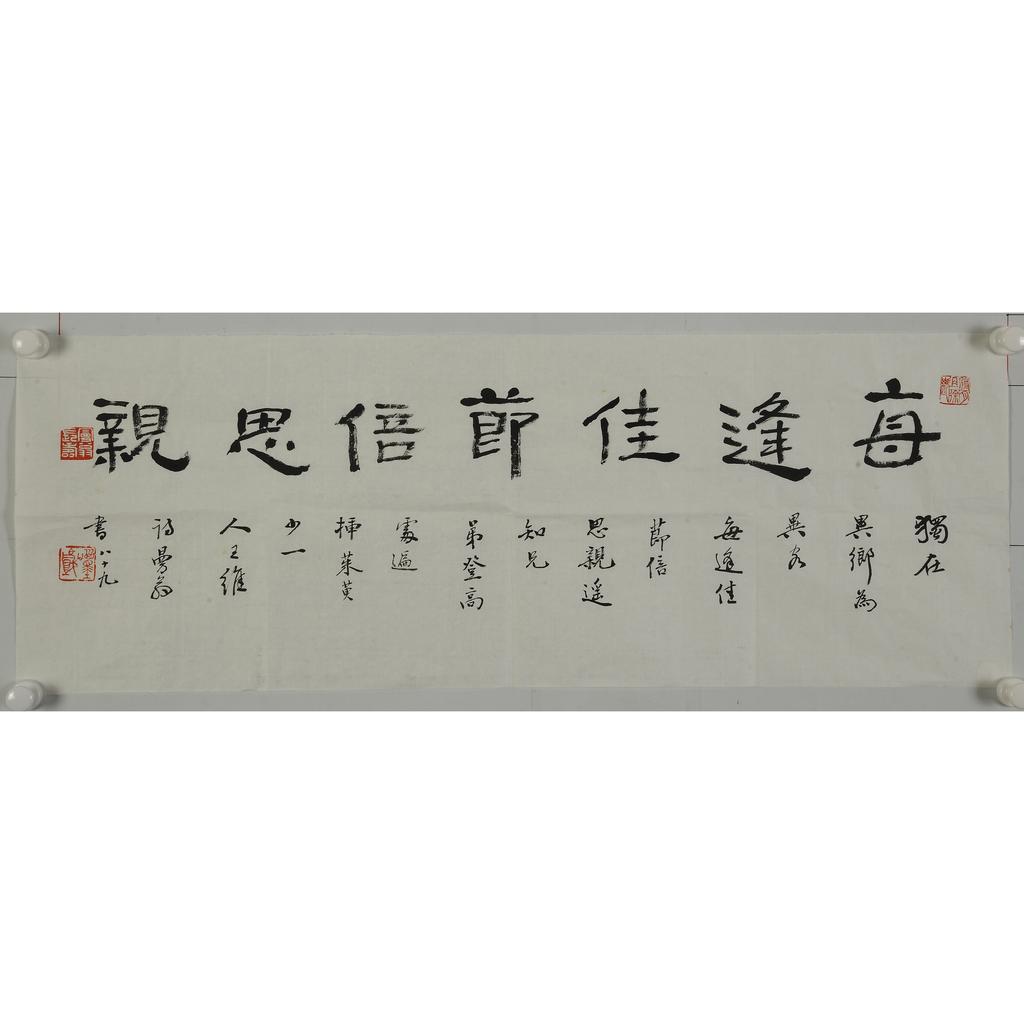 每逢佳節倍思親
獨在
異鄉為
異客
每逢佳
節倍
思親遥
知兄
弟登高
處遍
插茱萸
少一
人王維
詩曼翁
書八十九